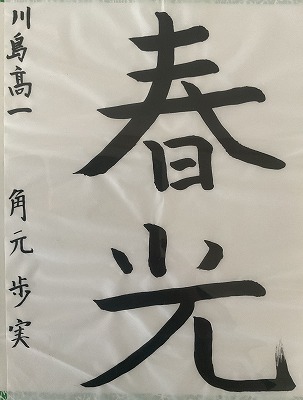 春光
川島高一 角元歩実